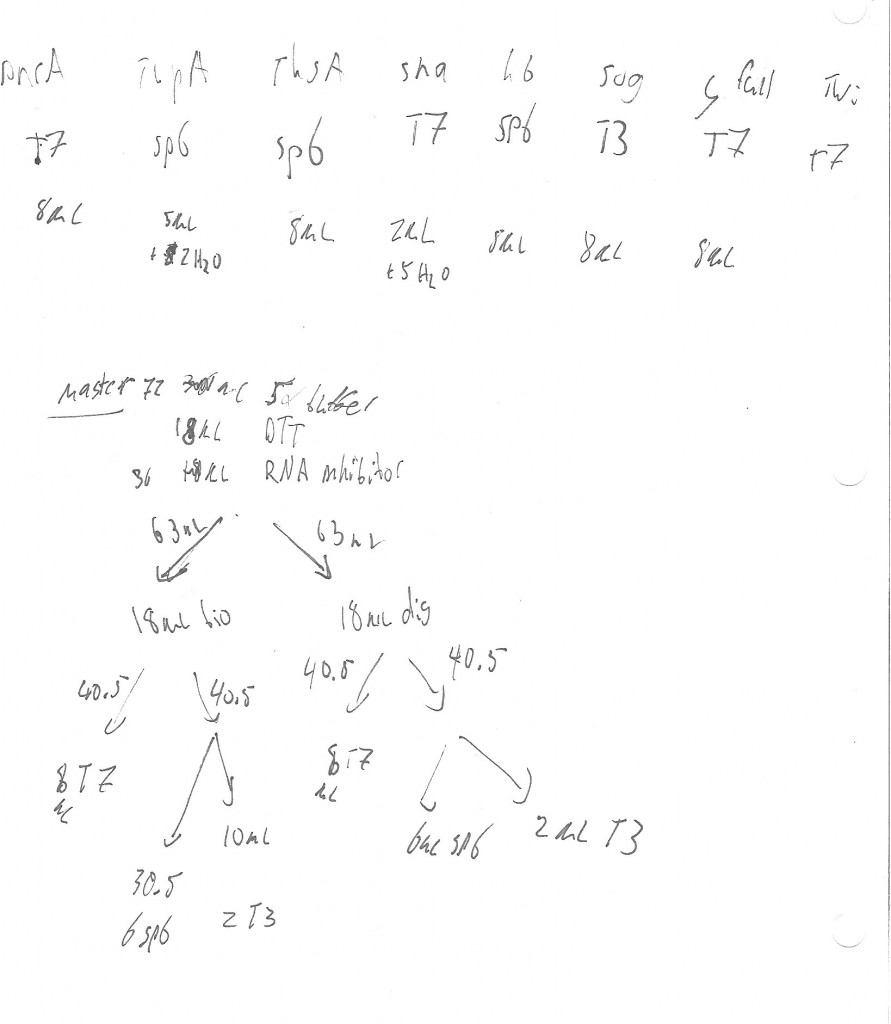 TupA ThsA sna hb sog full Twi
T7 sp6 sp6 T7 SP6 T3 T7 T7
8uL 5uL 8uL 2uL 8uL 8uL 8uL
+ 2 H2O +5 H2O
Master 72 5x buffer
18uL DTT
36 uL RNA inhibitor
63uL 63uL
18uL bio 18uL dig
40.5 40.5 40.5 40.5
8 T7 8 T7
uL uL
10uL 6uL SP6 2uL T3
30.5
6 sp6 2 T3